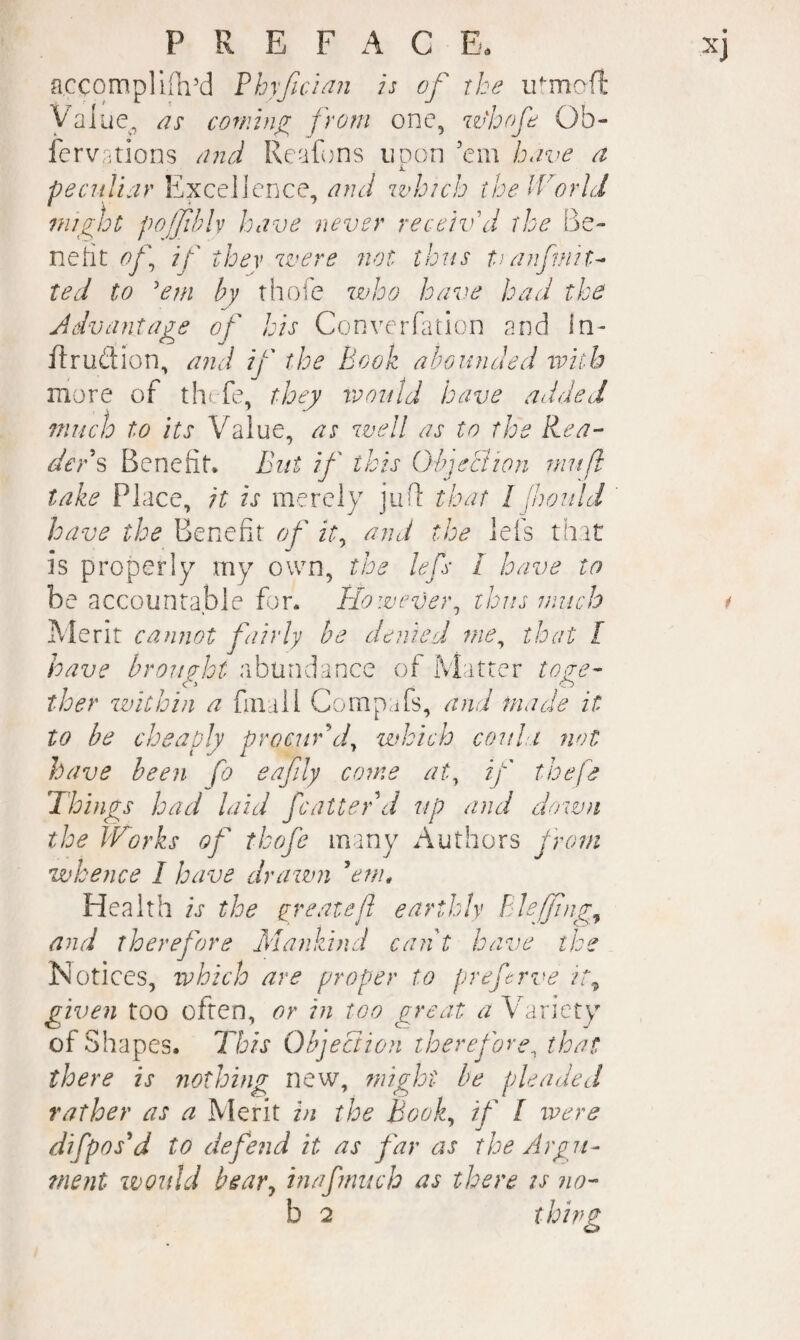 PREFACE. xj
accompliſh'd Phyſician is of the utmoſt
Value, as coming from one, whoſe Ob-
ſervations and Reaſons upon 'em have a
peculiar Excellence, and which the World
might poſſibly have never receiv'd the Be-
nefit of, if they were not thus tranſmit-
ted to 'em by thoſe who have had the
Advantage of his Converſation and In-
ſtruction, and if the Book abounded with
more of theſe, they would have added
much to its Value, as well as to the Rea-
der's Benefit. But if this Objection muſt
take Place, it is merely juſt that I ſhould
have the Benefit of it, and the leſs that
is properly my own, the leſs I have to
be accountable for. However, thus much
Merit cannot fairly be denied me, that I
have brought abundance of Matter toge-
ther within a ſmall Compaſs, and made it
to be cheaply procur'd, which could not
have been ſo eaſily come at, if theſe
Things had laid ſcatter'd up and down
the Works of thoſe many Authors from
whence I have drawn 'em.
Health is the greateſt earthly Bleſſing,
and therefore Mankind can't have the
Notices, which are proper to preſerve it,
given too often, or in too great a Variety
of Shapes. This Objection therefore, that
there is nothing new, might be pleaded
rather as a Merit in the Book, if I were
diſpos'd to defend it as far as the Argu-
ment would bear, inaſmuch as there is no-
b 2 thing